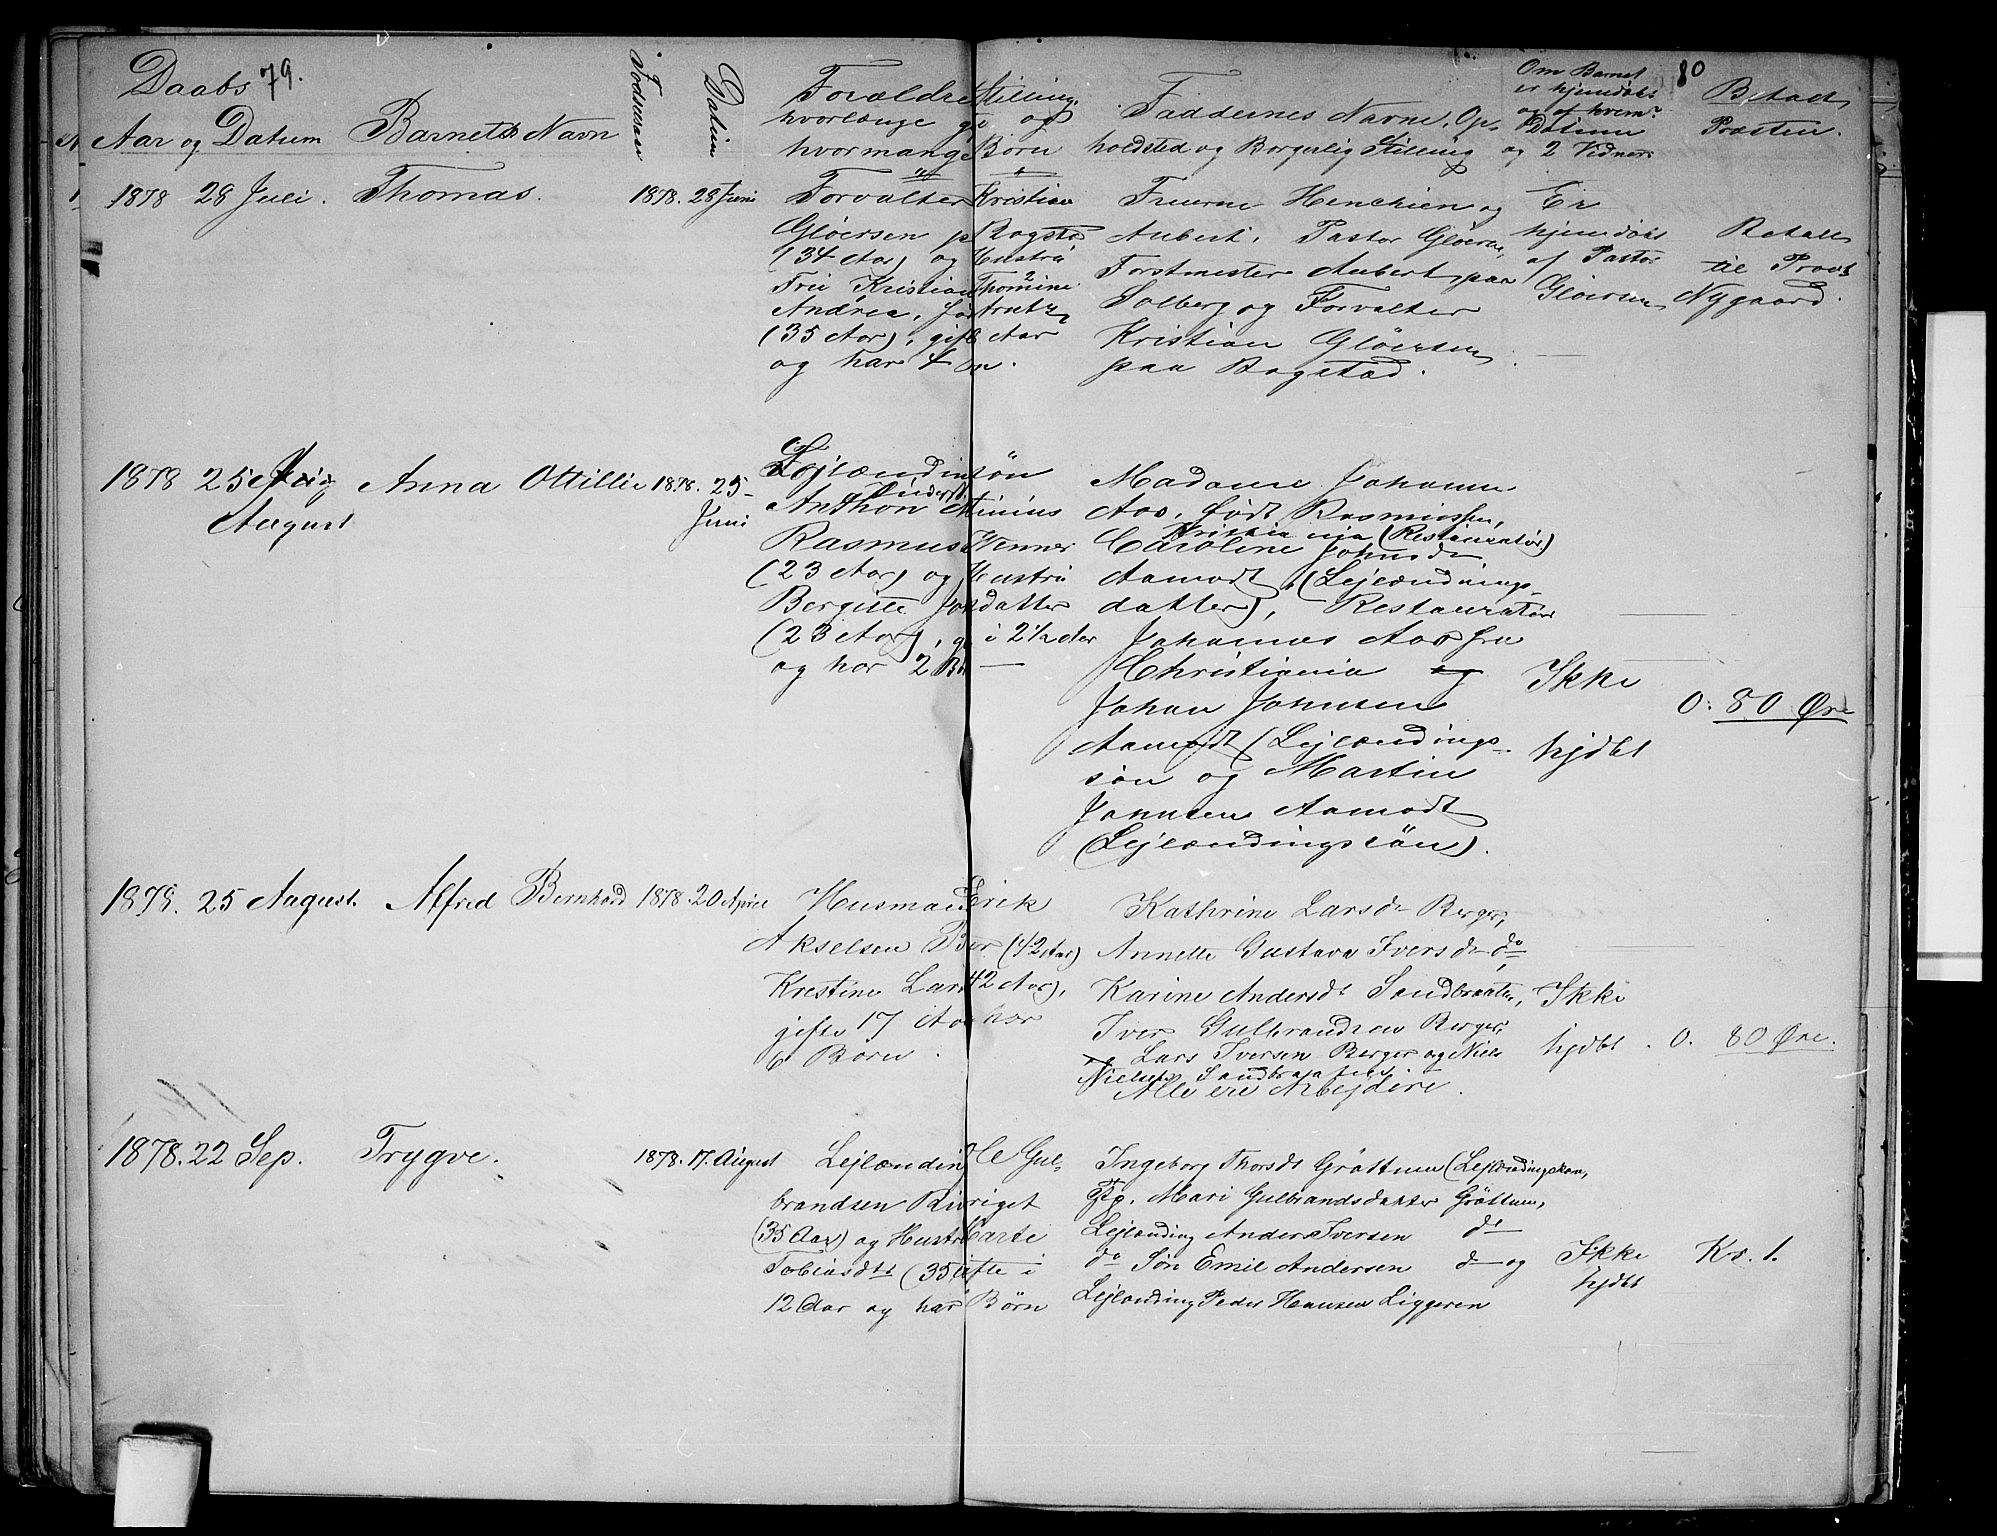 79.
80
Daabs
Aar og Datum
Barnets Navn
Datum
Forældre Stilling,
hvorlænge og
hvormange Børn
Faddernes Navne, Op-
holdsted og Borgerlig Stilling
Om Barnet
er hjemdøbt
og af hvem?
Datum
og 2 Vidner
Betalt
Præsten.
1878 28 Juli. Thomas. 1878. 28 Juni
Forvalter Kristian
Gløersen
(34 Aar) og Hustru
Kristian Thomine
Andrea, født
(35 Aar), gift Aar
og har 4
Fruerne og
Aubert, Pastor Gløersen,
Forstmester Aubert paa
Solberg og Forvalter
Kristian Gløersen
paa Bogstad.
Er
hjemdøbt
af Pastor
Gløersen
Betalt
til Provst
Nygaard.
1878 25 Anna Ottillie 1878. 25-
August Juni
Anthon
Rasmus
(23 Aar) og Hustru
Bergitte datter
(23 Aar), i 2½ Aar
og har 2
Madame
Aas, født Rasmussen,
Kristiania (Restauratør)
Caroline Johnsd
Aamodt (Lejlændings-
datter), Restauratør
Johannes Aas fra
Christiania og
Johan Johnsen
Aamodt (Lejlændings-
søn og Martin
Johnsen Aamodt
(Lejlændingssøn).
Ikke
hjdbt
0: 80 Øre
1878. 25 August. Alfred Bernhard 1878. 20 April
Husmand Erik
Akselsen (42 Aar)
Krestine 42 Aar),
gifte 17 Aar har
6 Børn.
Kathrine Larsd Berger,
Annette Gustava Iversd do,
Karine Andersdt Sandbraaten,
Iver Gulbrandsen Berger,
Lars Iversen Berger og Niels
Nielsen Sandbraaten
Alle ere Arbejdere.
Ikke
hjdbt.
0. 80 Øre.
1878. 22 Sep. Trygve. 1878. 17. August
Lejlænding Ole Gul-
brandsen
(35 Aar) og Hustru
Tobiasdtr (35 gifte i
12 Aar og har Børn
Ingeborg Thorsdt Grøttum (Lejlændingskone,
Pg. Mari Gulbrandsdatter Grøttum,
Lejlænding Anders Iversen do
do Søn Emil Andersen do og
Lejlænding Peder Hansen Liggeren
Ikke
hjdbt
Kr. 1.